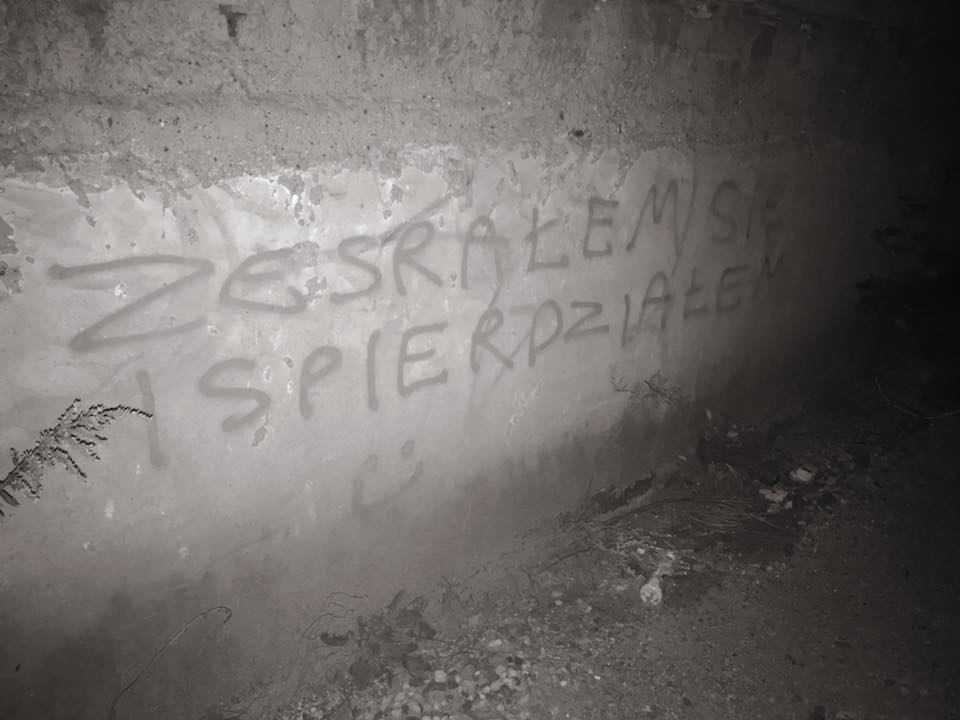 ZESRAŁEM SIĘ
I SPIERDZIAŁEM